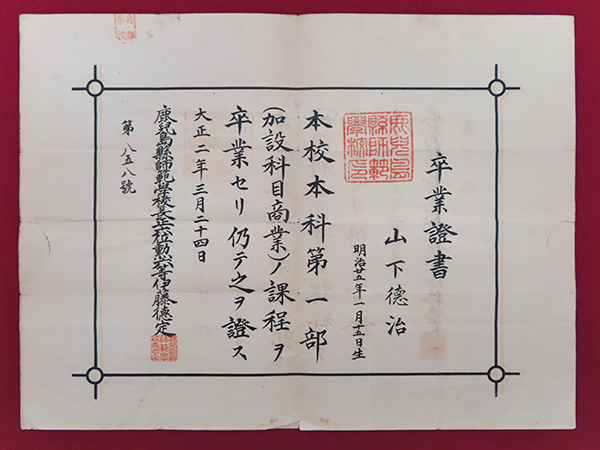 卒業證書
山下德治
明治廿五年一月十五日生
鹿兒島縣師範學校印
本校本科第一部
(加設科目商業)ノ課程ヲ
卒業セリ仍テ之ヲ證ス
大正二年三月二十四日
鹿兒島縣師範學校長正六位勳六等伊藤德定
第八五八號